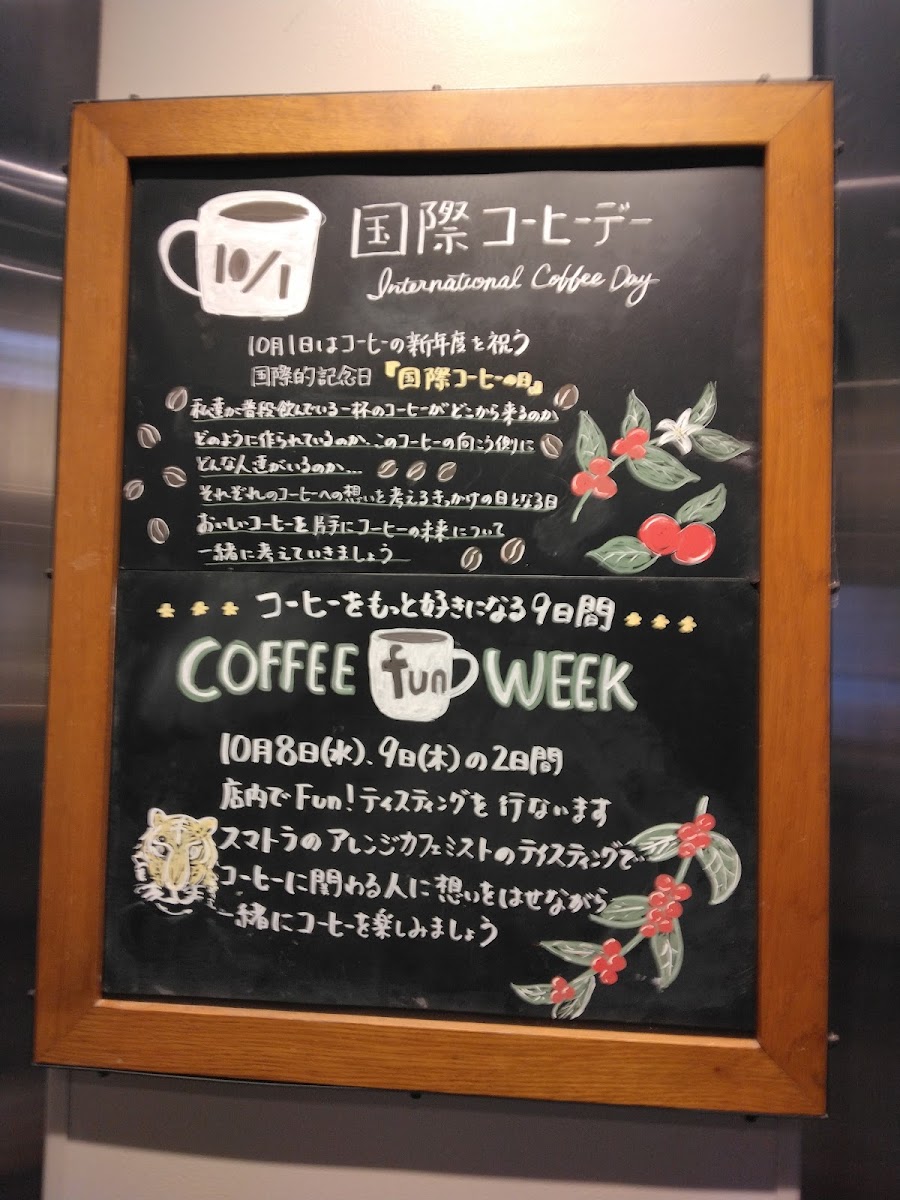 10/1
国際コーヒーデー
International Coffee Day
10月1日はコーヒーの新年度を祝う
国際的記念日『国際コーヒーの日』
私達が普段飲んでいる一杯のコーヒーがどこから来るのか
どのように作られているのか、このコーヒーの向こう側に
どんな人達がいるのか...
それぞれのコーヒーへの想いを考えるきっかけの日となる日
おいしいコーヒーを片手にコーヒーの未来について
一緒に考えていきましょう
コーヒーをもっと好きになる9日間
COFFEE fun WEEK
10月8日(水)、9日(木)の2日間
店内でFun!ティスティングを行ないます
スマトラのアレンジカフェミストのテイスティングで...
コーヒーに関わる人に想いをはせながら
一緒にコーヒーを楽しみましょう